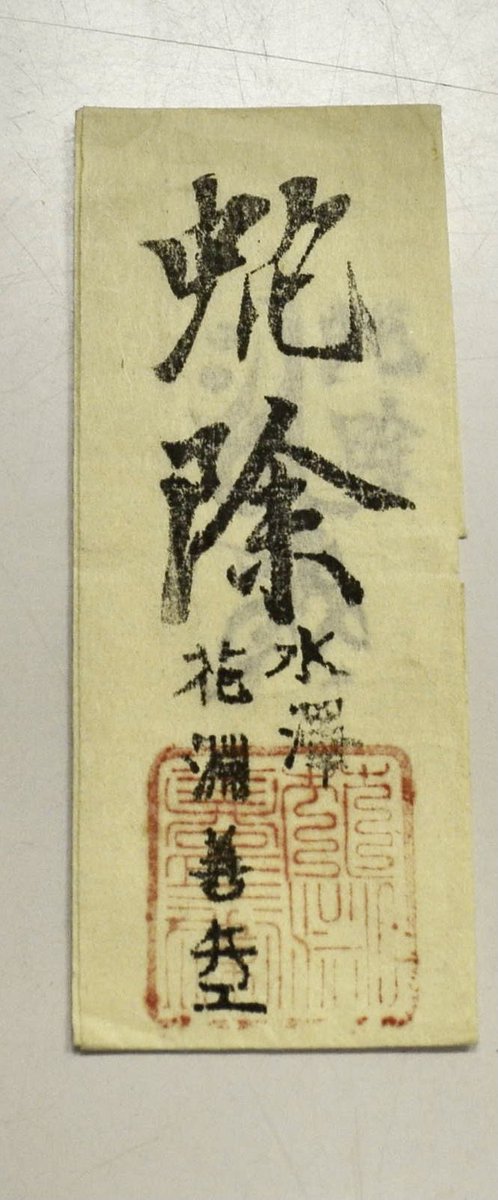 蛇除
水澤
花淵善兵エ